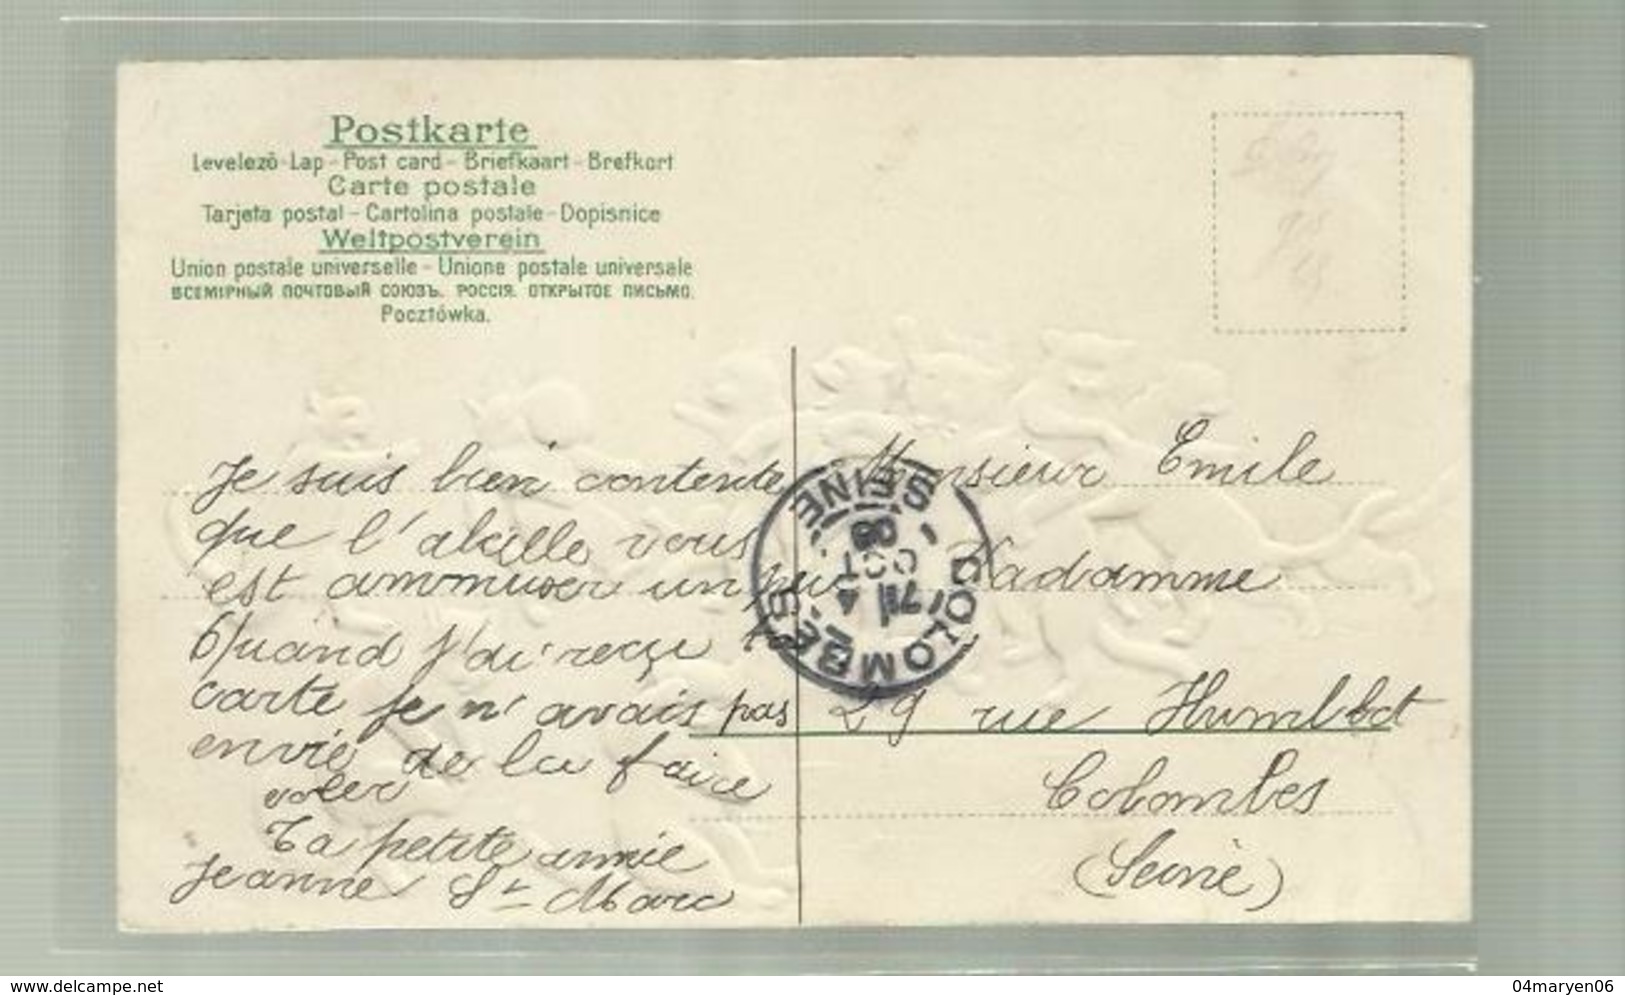 Postkarte
Levelező-Lap - Post card - Briefkaart - Brefkort
Carte postale
Tarjeta postal - Cartolina postale - Dopisnice
Weltpostverein
Union postale universelle - Unione postale universale
ВСЕМІРНЫЙ ПОЧТОВЫЙ СОЮЗЪ. РОССІЯ. ОТКРЫТОЕ ПИСЬМО.
Pocztówka.
Je suis bien contente
que l'abeille vous
est ammuser un peu
Quand j'ai reçu ta
carte je n'avais pas
envie de la faire
voler
Ta petite amie
Jeanne St Marc
Monsieur Emile
Kadamme
29 rue Humblot
Colombes
(Seine)
COLOMBES
SEINE
4
OCT
08
www.delcampe.net
04maryen06